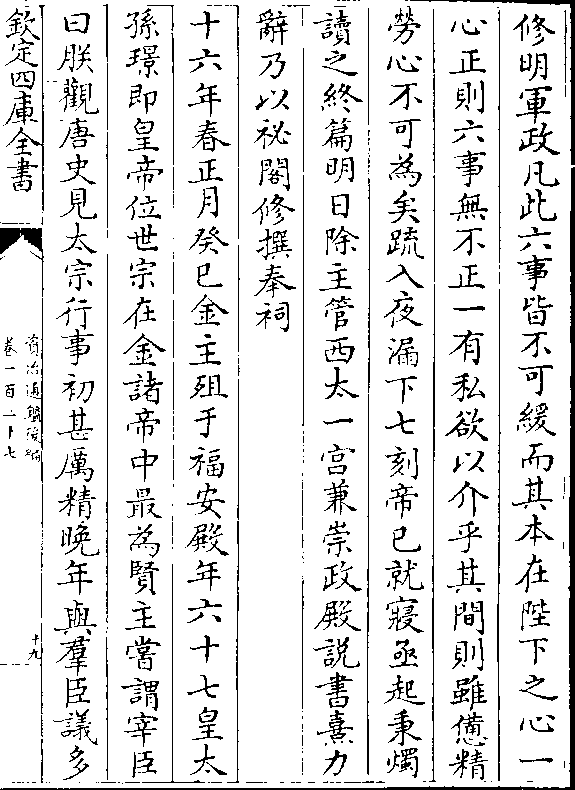 修明軍政凡此六事皆不可緩而其本在陛下之心一
心正則六事無不正一有私欲以介乎其間則雖憊精
勞心不可為矣疏入夜漏下七刻帝已就寢亟起秉燭
讀之終篇明日除主管西太一宮兼崇政殿説書熹力
辭乃以祕閣修撰奉祠
十六年春正月癸巳金主殂于福安殿年六十七皇太
孫璟即皇帝位世宗在金諸帝中最為賢主嘗謂宰臣
曰朕觀唐史見太宗行事初甚厲精晚年與羣臣議多
欽定四庫全書
資治通鑑後編
卷一百二十七
十九